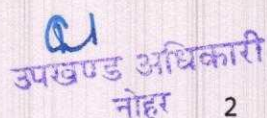 उपखण्ड अधिकारी
नोहर 2